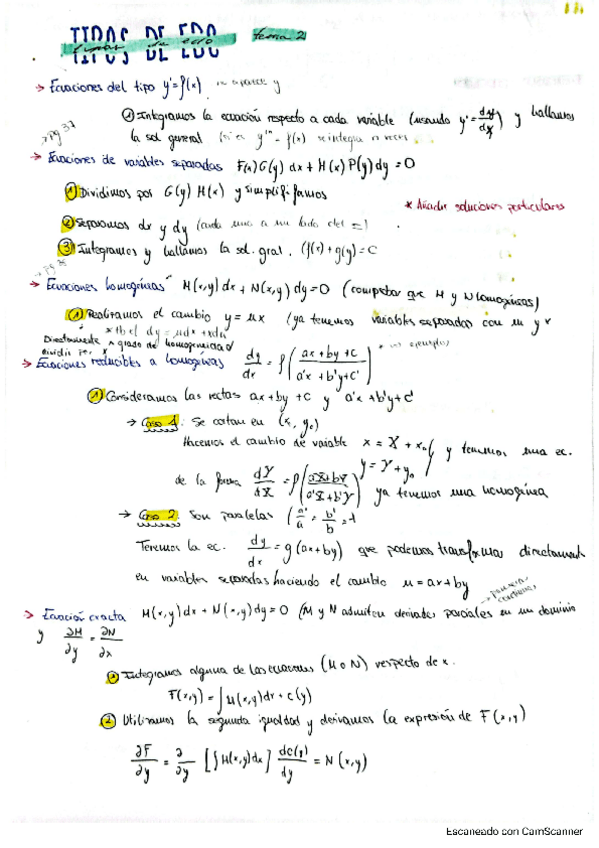 TIPOS DE EDO tema 2
→ Ecuaciones del tipo y'=f(x) no aparece y
① Integramos la ecuación respecto a cada variable (usando y'=dy/dx) y hallamos
la sol general
→pg 37
→ Ecuaciones de variables separadas F(x)G(y)dx+H(x)P(y)dy=0
① Dividimos por G(y) H(x) y simplificamos
* Añadir soluciones particulares
② Separamos dx y dy (cada uno a un lado del =)
③ Integramos y hallamos la sol. gral. (f(x)+g(y)=C
→ Ecuaciones homogéneas M(x,y)dx+N(x,y)dy=0 (comprobar que M y N homogéneas)
① Realizamos el cambio y=ux (ya tenemos variables separadas con u y x
dy=udx+xdu
Directamente
dividir por x
→ Ecuaciones reducibles a homogéneas dy/dx = f(ax+by+c / a'x+b'y+c')
① Consideramos las rectas ax+by+c y a'x+b'y+c'
→ Caso 1: Se cortan en (x₀, y₀)
Hacemos el cambio de variable x=X+x₀ y=Y+y₀ y tenemos una ec.
de la forma dY/dX = f(aX+bY / a'X+b'Y) ya tenemos una homogénea
→ Caso 2: Son paralelas (a'/a = b'/b = λ
Tenemos la ec. dy/dx = g(ax+by) que podemos transformar directament
en variables separadas haciendo el cambio u=ax+by
→ Ecuación exacta M(x,y)dx+N(x,y)dy=0 (M y N admiten derivadas parciales en un dominio
y ∂M/∂y = ∂N/∂x
① Integramos alguna de las ecuaciones (M o N) respecto de x.
F(x,y)=∫M(x,y)dx+c(y)
② Utilizamos la segunda igualdad y derivamos la expresión de F(x,y)
∂F/∂y = ∂/∂y [∫M(x,y)dx] dC(y)/dy = N(x,y)
Escaneado con CamScanner